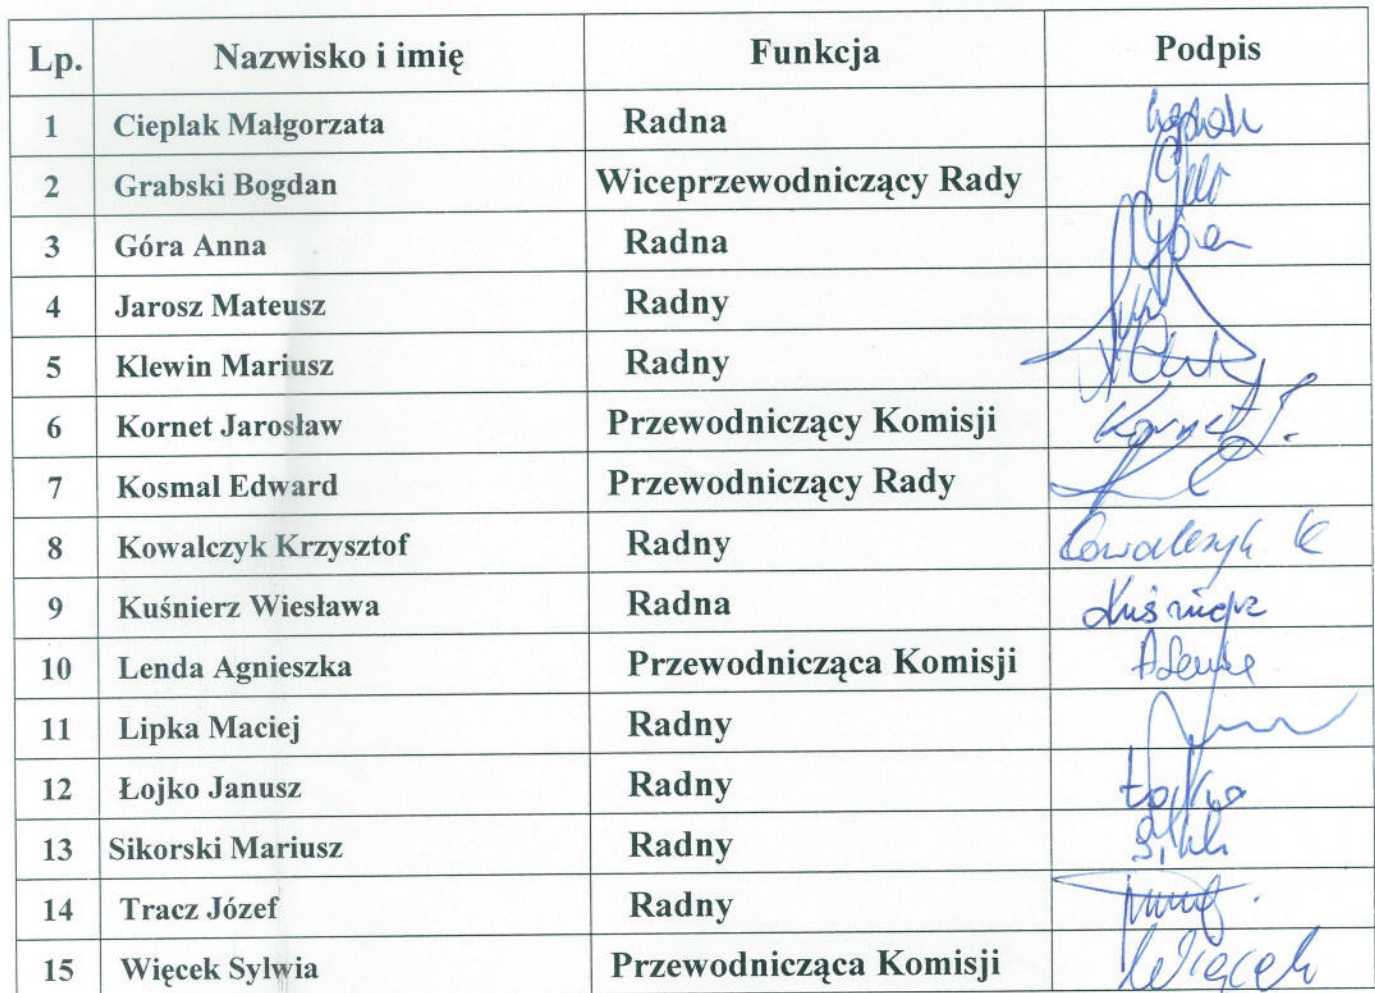 Lp. Nazwisko i imię Funkcja Podpis
1 Cieplak Małgorzata Radna
2 Grabski Bogdan Wiceprzewodniczący Rady
3 Góra Anna Radna Góra
4 Jarosz Mateusz Radny
5 Klewin Mariusz Radny
6 Kornet Jarosław Przewodniczący Komisji Kornet J.
7 Kosmal Edward Przewodniczący Rady
8 Kowalczyk Krzysztof Radny Kowalczyk K
9 Kuśnierz Wiesława Radna Kuśnierz
10 Lenda Agnieszka Przewodnicząca Komisji A Lenda
11 Lipka Maciej Radny
12 Łojko Janusz Radny Łojko
13 Sikorski Mariusz Radny
14 Tracz Józef Radny
15 Więcek Sylwia Przewodnicząca Komisji Więcek